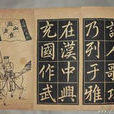 詩人歌功
乃列于雅
在漢中興
充國作武